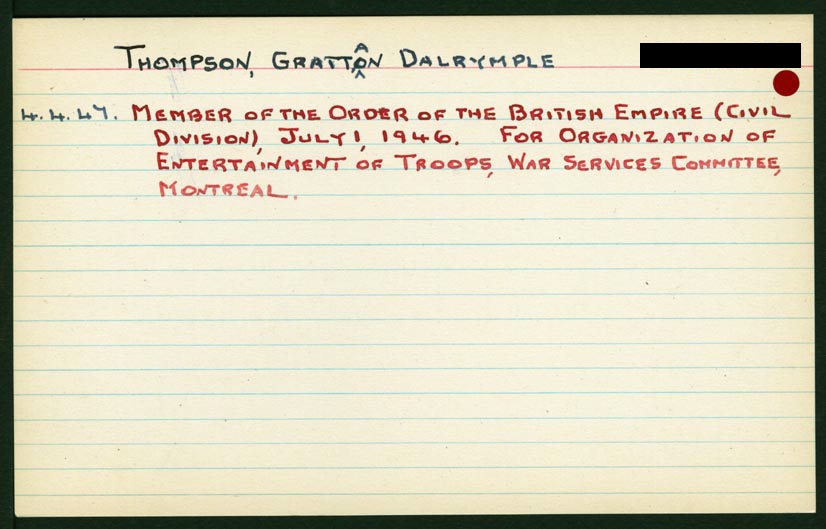 THOMPSON, GRATTAN DALRYMPLE
4.4.47. MEMBER OF THE ORDER OF THE BRITISH EMPIRE (CIVIL
DIVISION), JULY 1, 1946. FOR ORGANIZATION OF
ENTERTAINMENT OF TROOPS, WAR SERVICES COMMITTEE,
MONTREAL.